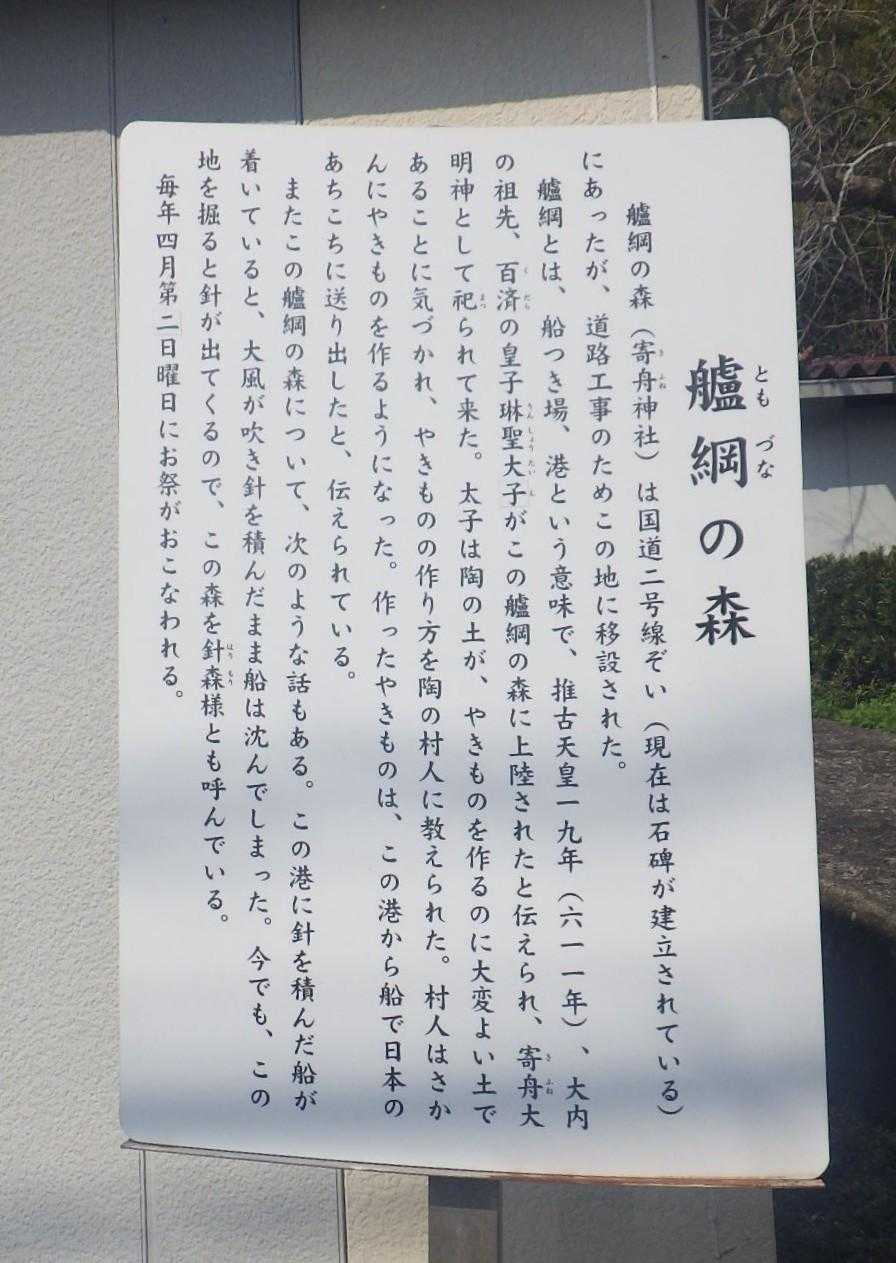 艫綱の森
ともづな
艫綱の森(寄舟神社)は国道二号線ぞい(現在は石碑が建立されている)
きふね
にあったが、道路工事のためこの地に移設された。
艫綱とは、船つき場、港という意味で、推古天皇一九年(六一一年)、大内
の祖先、百済の皇子琳聖大子がこの艫綱の森に上陸されたと伝えられ、寄舟大
くだら
きふね
明神として祀られて来た。太子は陶の土が、やきものを作るのに大変よい土で
まつ
あることに気づかれ、やきものの作り方を陶の村人に教えられた。村人はさか
んにやきものを作るようになった。作ったやきものは、この港から船で日本の
あちこちに送り出したと、伝えられている。
またこの艫綱の森について、次のような話もある。この港に針を積んだ船が
着いていると、大風が吹き針を積んだまま船は沈んでしまった。今でも、この
地を掘ると針が出てくるので、この森を針森様とも呼んでいる。
はりもり
毎年四月第二日曜日にお祭がおこなわれる。